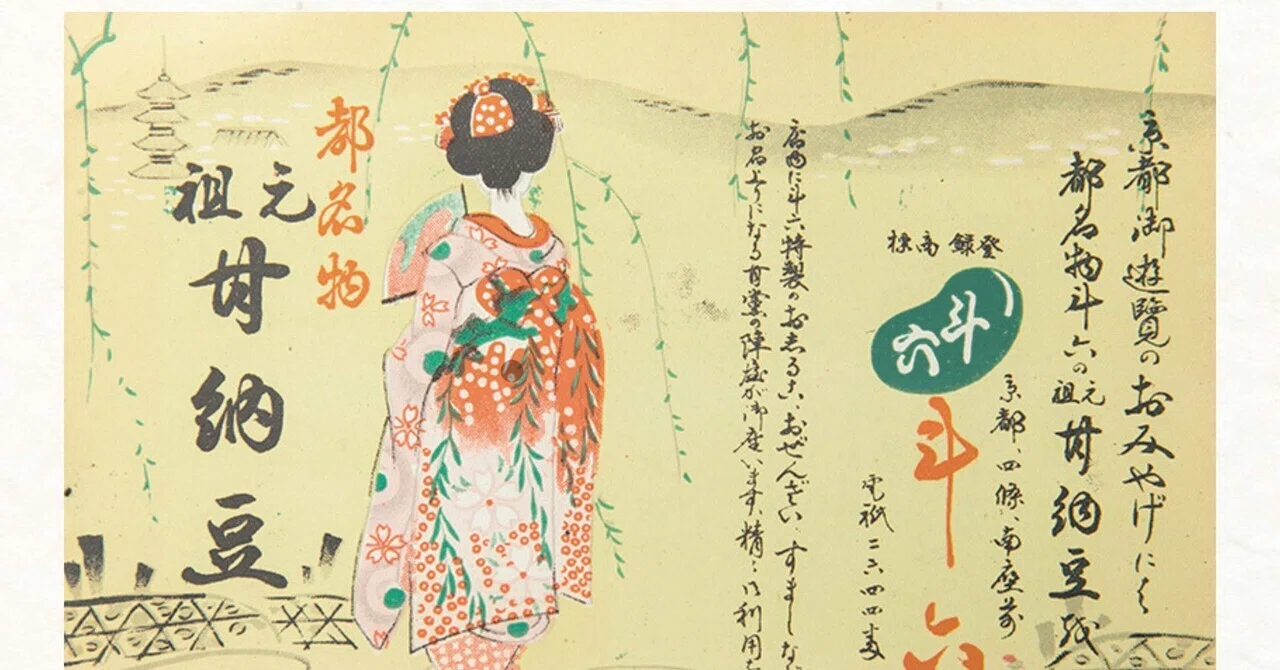 京都御遊覧のおみやげにと
都名物斗六の元祖甘納豆を
京都、四條、南座前
登録商標
斗六
斗六
電祇二六四四番
店内に斗六特製のおしるこ、おぜんざい、すましな
お召上りになる甘黨の陣が御座います、精々御利用
都名物
元祖
甘納豆